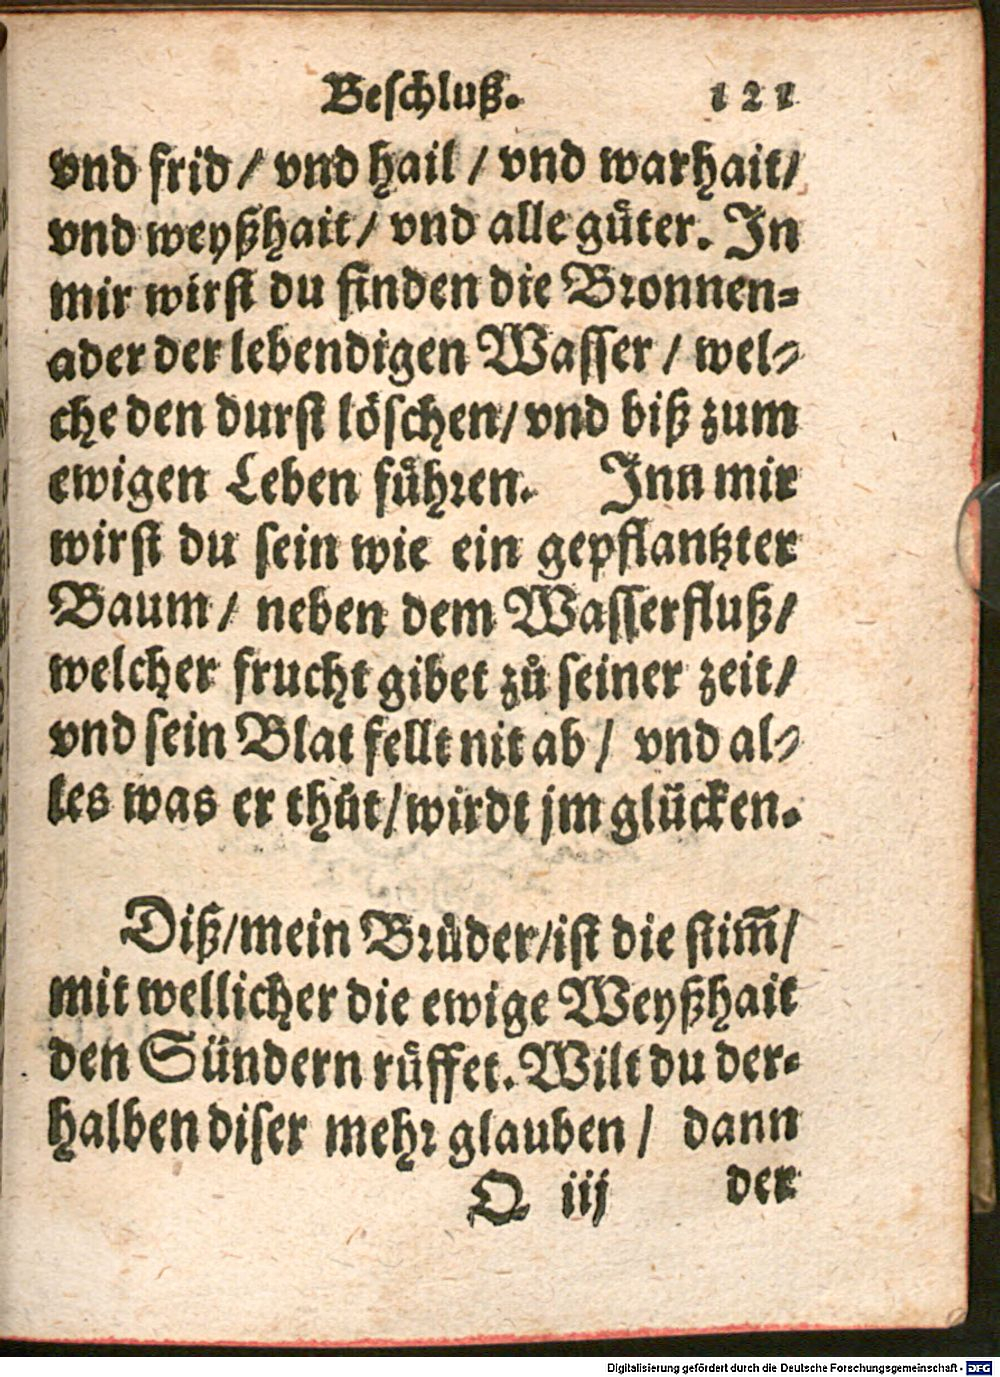 Beschluß. 121
vnd frid/ vnd hail / vnd warhait/
vnd weyßhait/ vnd alle guͤter. In
mir wirst du finden die Bronnen-
ader der lebendigen Wasser / wel-
che den durst löschen/ vnd biß zum
ewigen Leben fuͤhren. Inn mir
wirst du sein wie ein gepflantzter
Baum/ neben dem Wasserfluß/
welcher frucht gibet zů seiner zeit/
vnd sein Blat fellt nit ab / vnd al-
les was er thůt/wirdt jm glücken.
Diß/mein Brůder/ist die stim̃/
mit wellicher die ewige Weyßhait
den Sündern ruͤffet. Wilt du der-
halben diser mehr glauben / dann
Q iij der
Digitalisierung gefördert durch die Deutsche Forschungsgemeinschaft - DFG